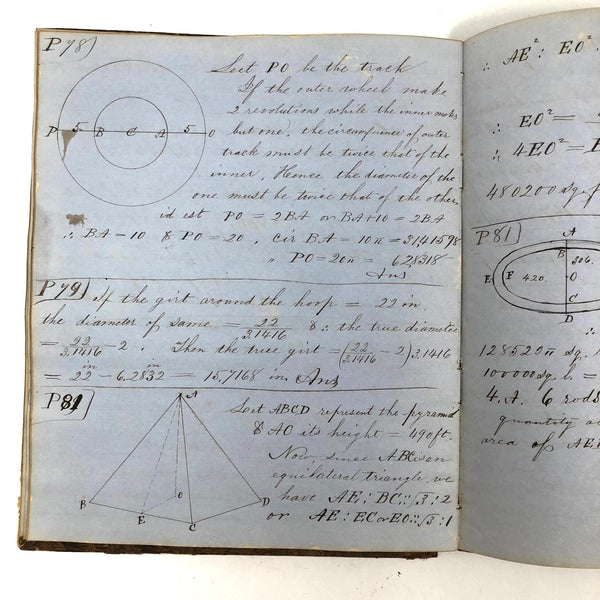 P 78)
Let PO be the track
If the outer wheel make
2 revolutions while the inner makes
but one, the circumference of outer
track must be twice that of the
inner. Hence the diameter of the
one must be twice that of the other
id est PO = 2BA or BA+10 = 2BA
∴ BA = 10 & PO = 20, cir BA = 10π = 31,41598
" PO = 20π = 628318
Ans
P 5 B C A 5 O
P 79)
If the girt around the hoop = 22 in
the diameter of same = 22/3.1416 & ∴ the true diameter
= 22/3.1416 - 2. Then the true girt = (22/3.1416 - 2) 3.1416
= 22 in - 6.2832 in = 15,7168 in. Ans
P 81)
Let ABCD represent the pyramid
& AO its height = 490 ft.
Now, since ABC is an
equilateral triangle, we
have AE : BC :: √3 : 2
or AE : EC or EO :: √3 : 1
A
B E O C D
∴ AE² : EO²
∴ EO² =
∴ 4EO² =
480200 sq. f
P 81)
A
B
306.
E F 420. O
C
D
128520π sq. l
100000 sq. l. =
4. A. 6 rods
quantity
area of AE